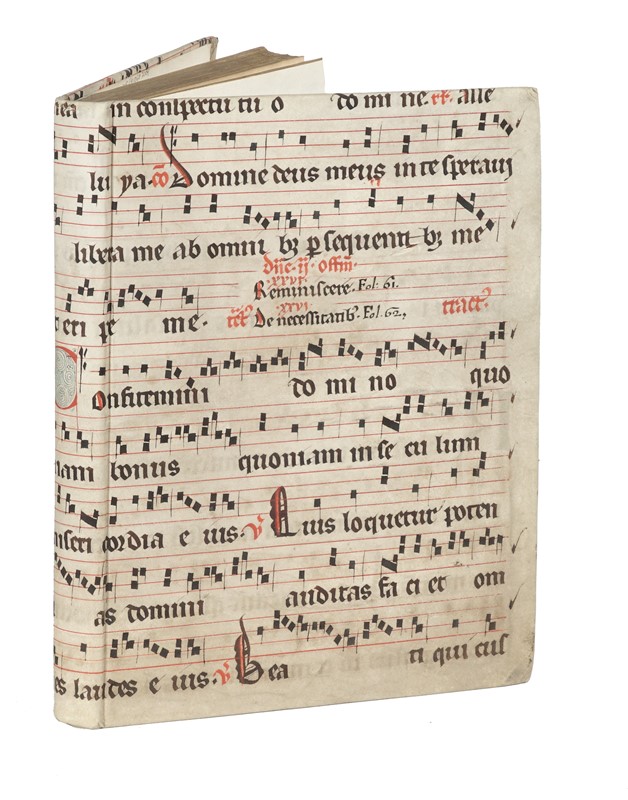 in conspectu tu o do mi ne. alle
lu ya. co Domine deus meus in te speraui
libera me ab omni bz p sequenti bz me
Dne. ij. offm.
xxvi
Reminiscere. Fol. 61.
et eri pe me. xxvi tract
De necessitatib. Fol. 62,
Confitemini do mi no quo
niam bonus quoniam in se cu lum
miseri cordia e ius. V Quis loquetur poten
as domini auditas fa ci et om
es laudes e ius. V Bea ti qui cus